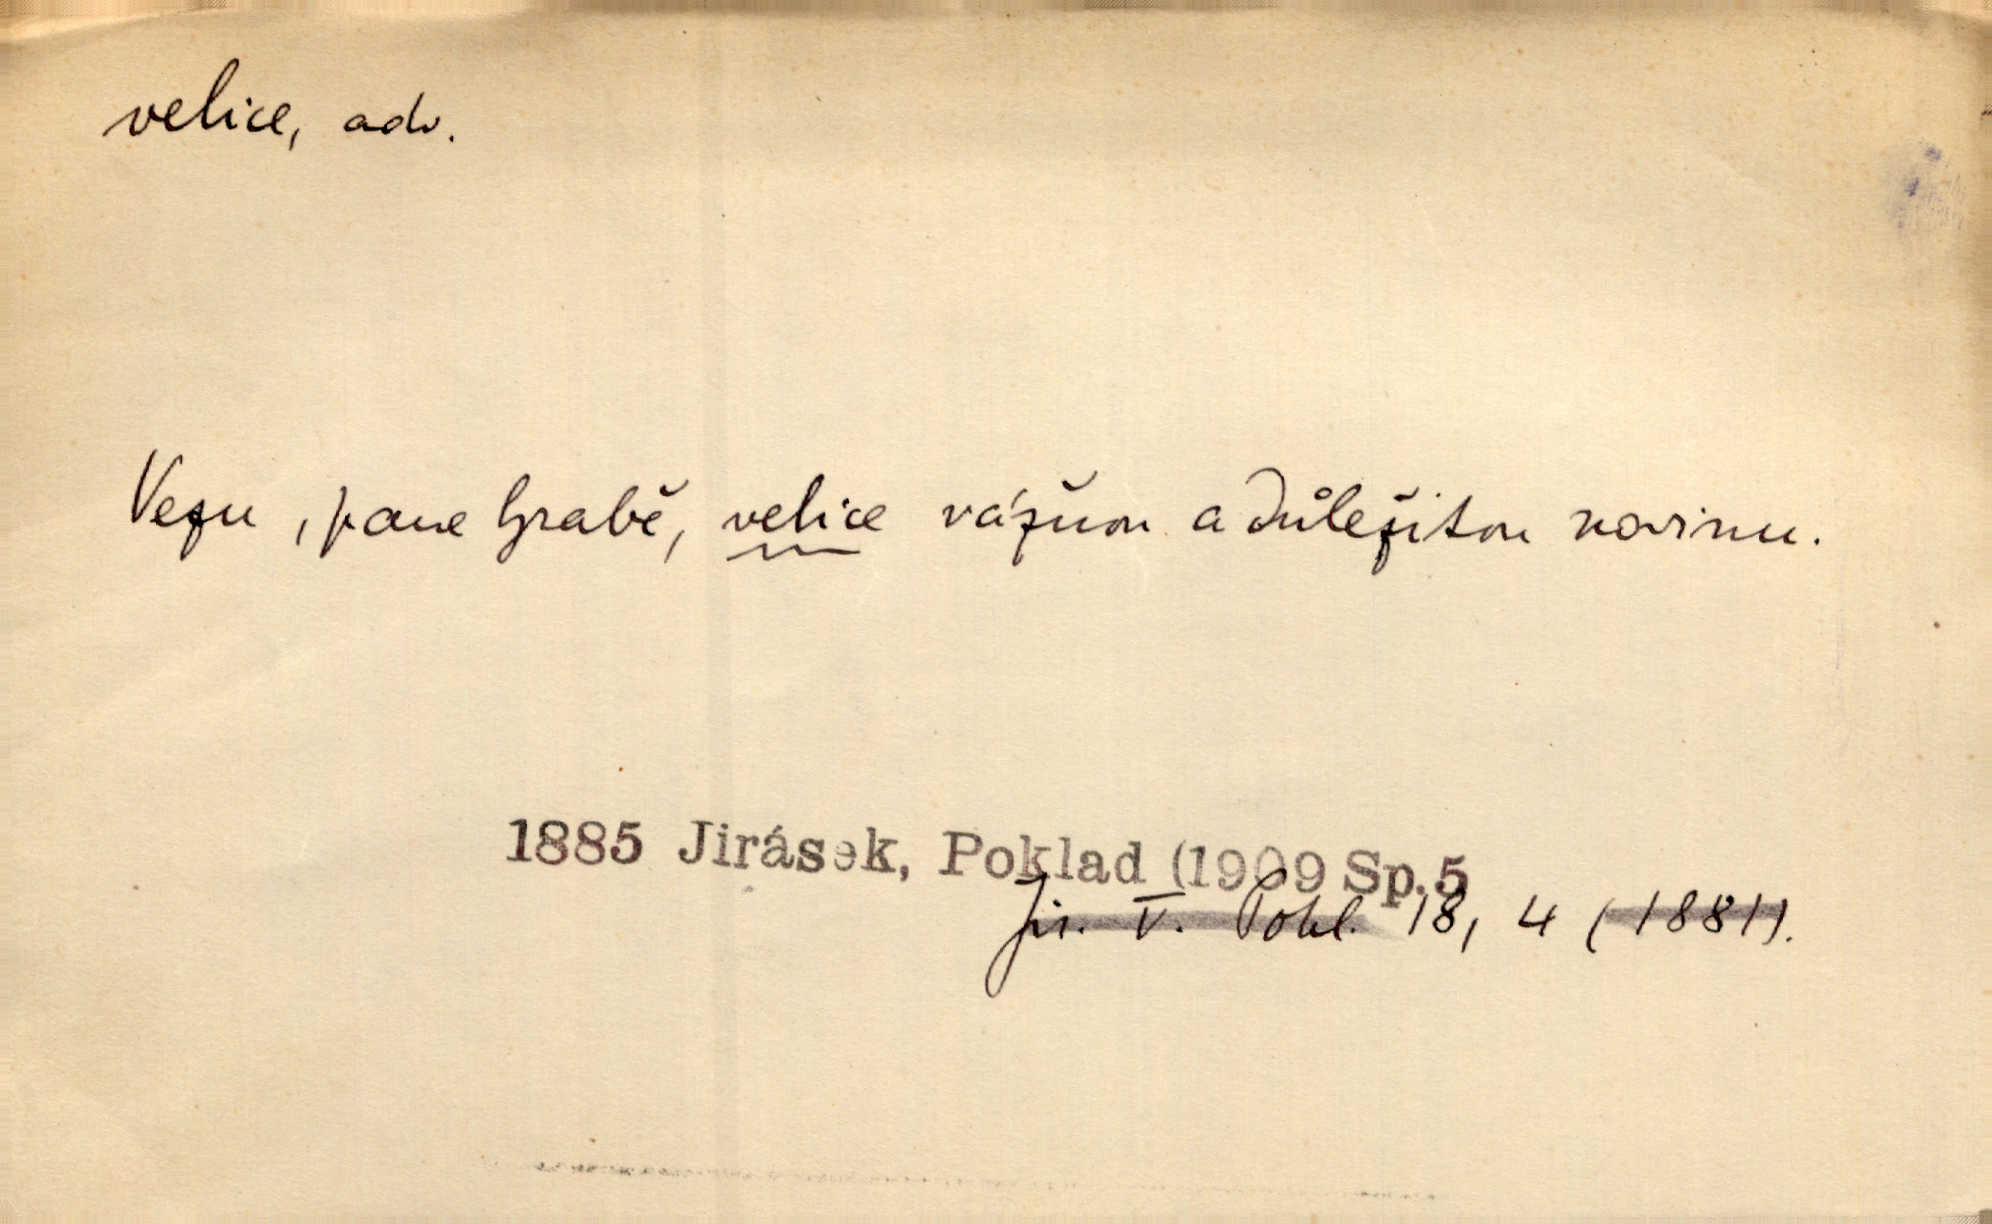 velice, adv.
Vezu, pane hrabě, velice vážnou a důležitou novinu.
1885 Jirásek, Poklad (1909 Sp.5
Jir. V. Pokl. 18, 4 (1881).